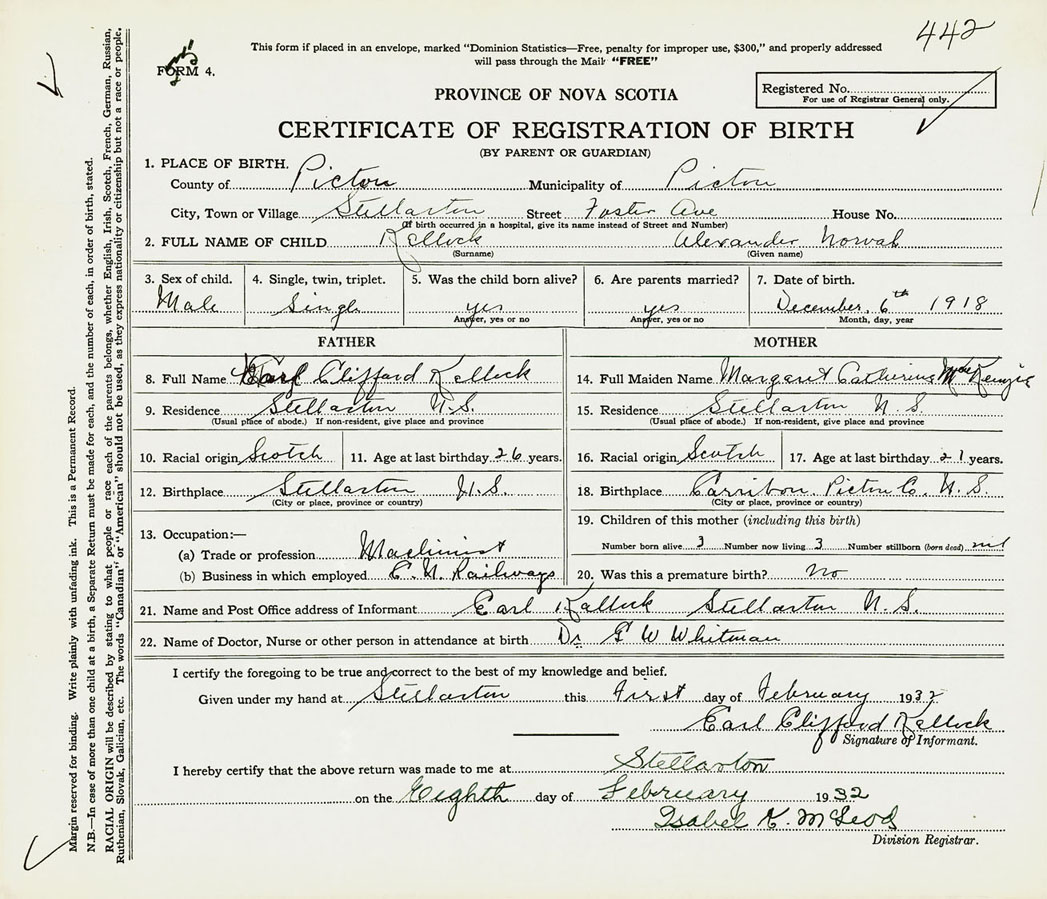 442
This form if placed in an envelope, marked "Dominion Statistics—Free, penalty for improper use, $300," and properly addressed
will pass through the Mail "FREE"
FORM 4.
PROVINCE OF NOVA SCOTIA
Registered No.
For use of Registrar General only.
CERTIFICATE OF REGISTRATION OF BIRTH
(BY PARENT OR GUARDIAN)
1. PLACE OF BIRTH.
County of Pictou Municipality of Pictou
City, Town or Village Stellarton Street Foster Ave House No.
(If birth occurred in a hospital, give its name instead of Street and Number)
2. FULL NAME OF CHILD Kellock Alexander Norval
(Surname) (Given name)
3. Sex of child. 4. Single, twin, triplet. 5. Was the child born alive? 6. Are parents married? 7. Date of birth.
Male Single yes yes December, 6th 1918
Answer, yes or no Answer, yes or no Month, day, year
FATHER MOTHER
8. Full Name Earl Clifford Kellock 14. Full Maiden Name Margaret Catherine MacKenzie
9. Residence Stellarton N.S. 15. Residence Stellarton N.S.
(Usual place of abode.) If non-resident, give place and province (Usual place of abode.) If non-resident, give place and province
10. Racial origin Scotch 11. Age at last birthday 26 years. 16. Racial origin Scotch 17. Age at last birthday 21 years.
12. Birthplace Stellarton N.S. 18. Birthplace Carribou Pictou Co. N.S.
(City or place, province or country) (City or place, province or country)
19. Children of this mother (including this birth)
13. Occupation:—
(a) Trade or profession Machinist Number born alive 3 Number now living 3 Number stillborn (born dead) nil
(b) Business in which employed C.N. Railways 20. Was this a premature birth? No
21. Name and Post Office address of Informant Earl Kellock Stellarton N.S.
22. Name of Doctor, Nurse or other person in attendance at birth Dr. G W Whitman
I certify the foregoing to be true and correct to the best of my knowledge and belief.
Given under my hand at Stellarton this first day of February 1932
Earl Clifford Kellock
Signature of Informant.
I hereby certify that the above return was made to me at Stellarton
on the Eighth day of February 1932
Isabel K. McLeod
Division Registrar.
Margin reserved for binding. Write plainly with unfading ink. This is a Permanent Record.
N.B.—In case of more than one child at a birth, a Separate Return must be made for each, and the number of each, in order of birth, stated.
RACIAL ORIGIN will be described by stating to what people or race each of the parents belongs, whether English, Irish, Scotch, French, German, Russian,
Ruthenian, Slovak, Galician, etc. The words "Canadian" or "American" should not be used, as they express nationality or citizenship but not a race or people.